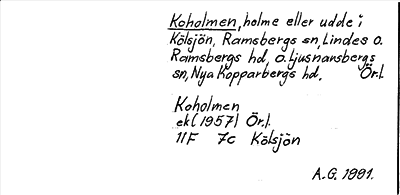 Koholmen, holme eller udde i
Kölsjön, Ramsbergs sn, Lindes o.
Ramsbergs hd, o. Ljusnarsbergs
sn, Nya Kopparbergs hd. Ör.l.
Koholmen
ek (1957) Ör.l.
11F 7c Kölsjön
A.G. 1991.